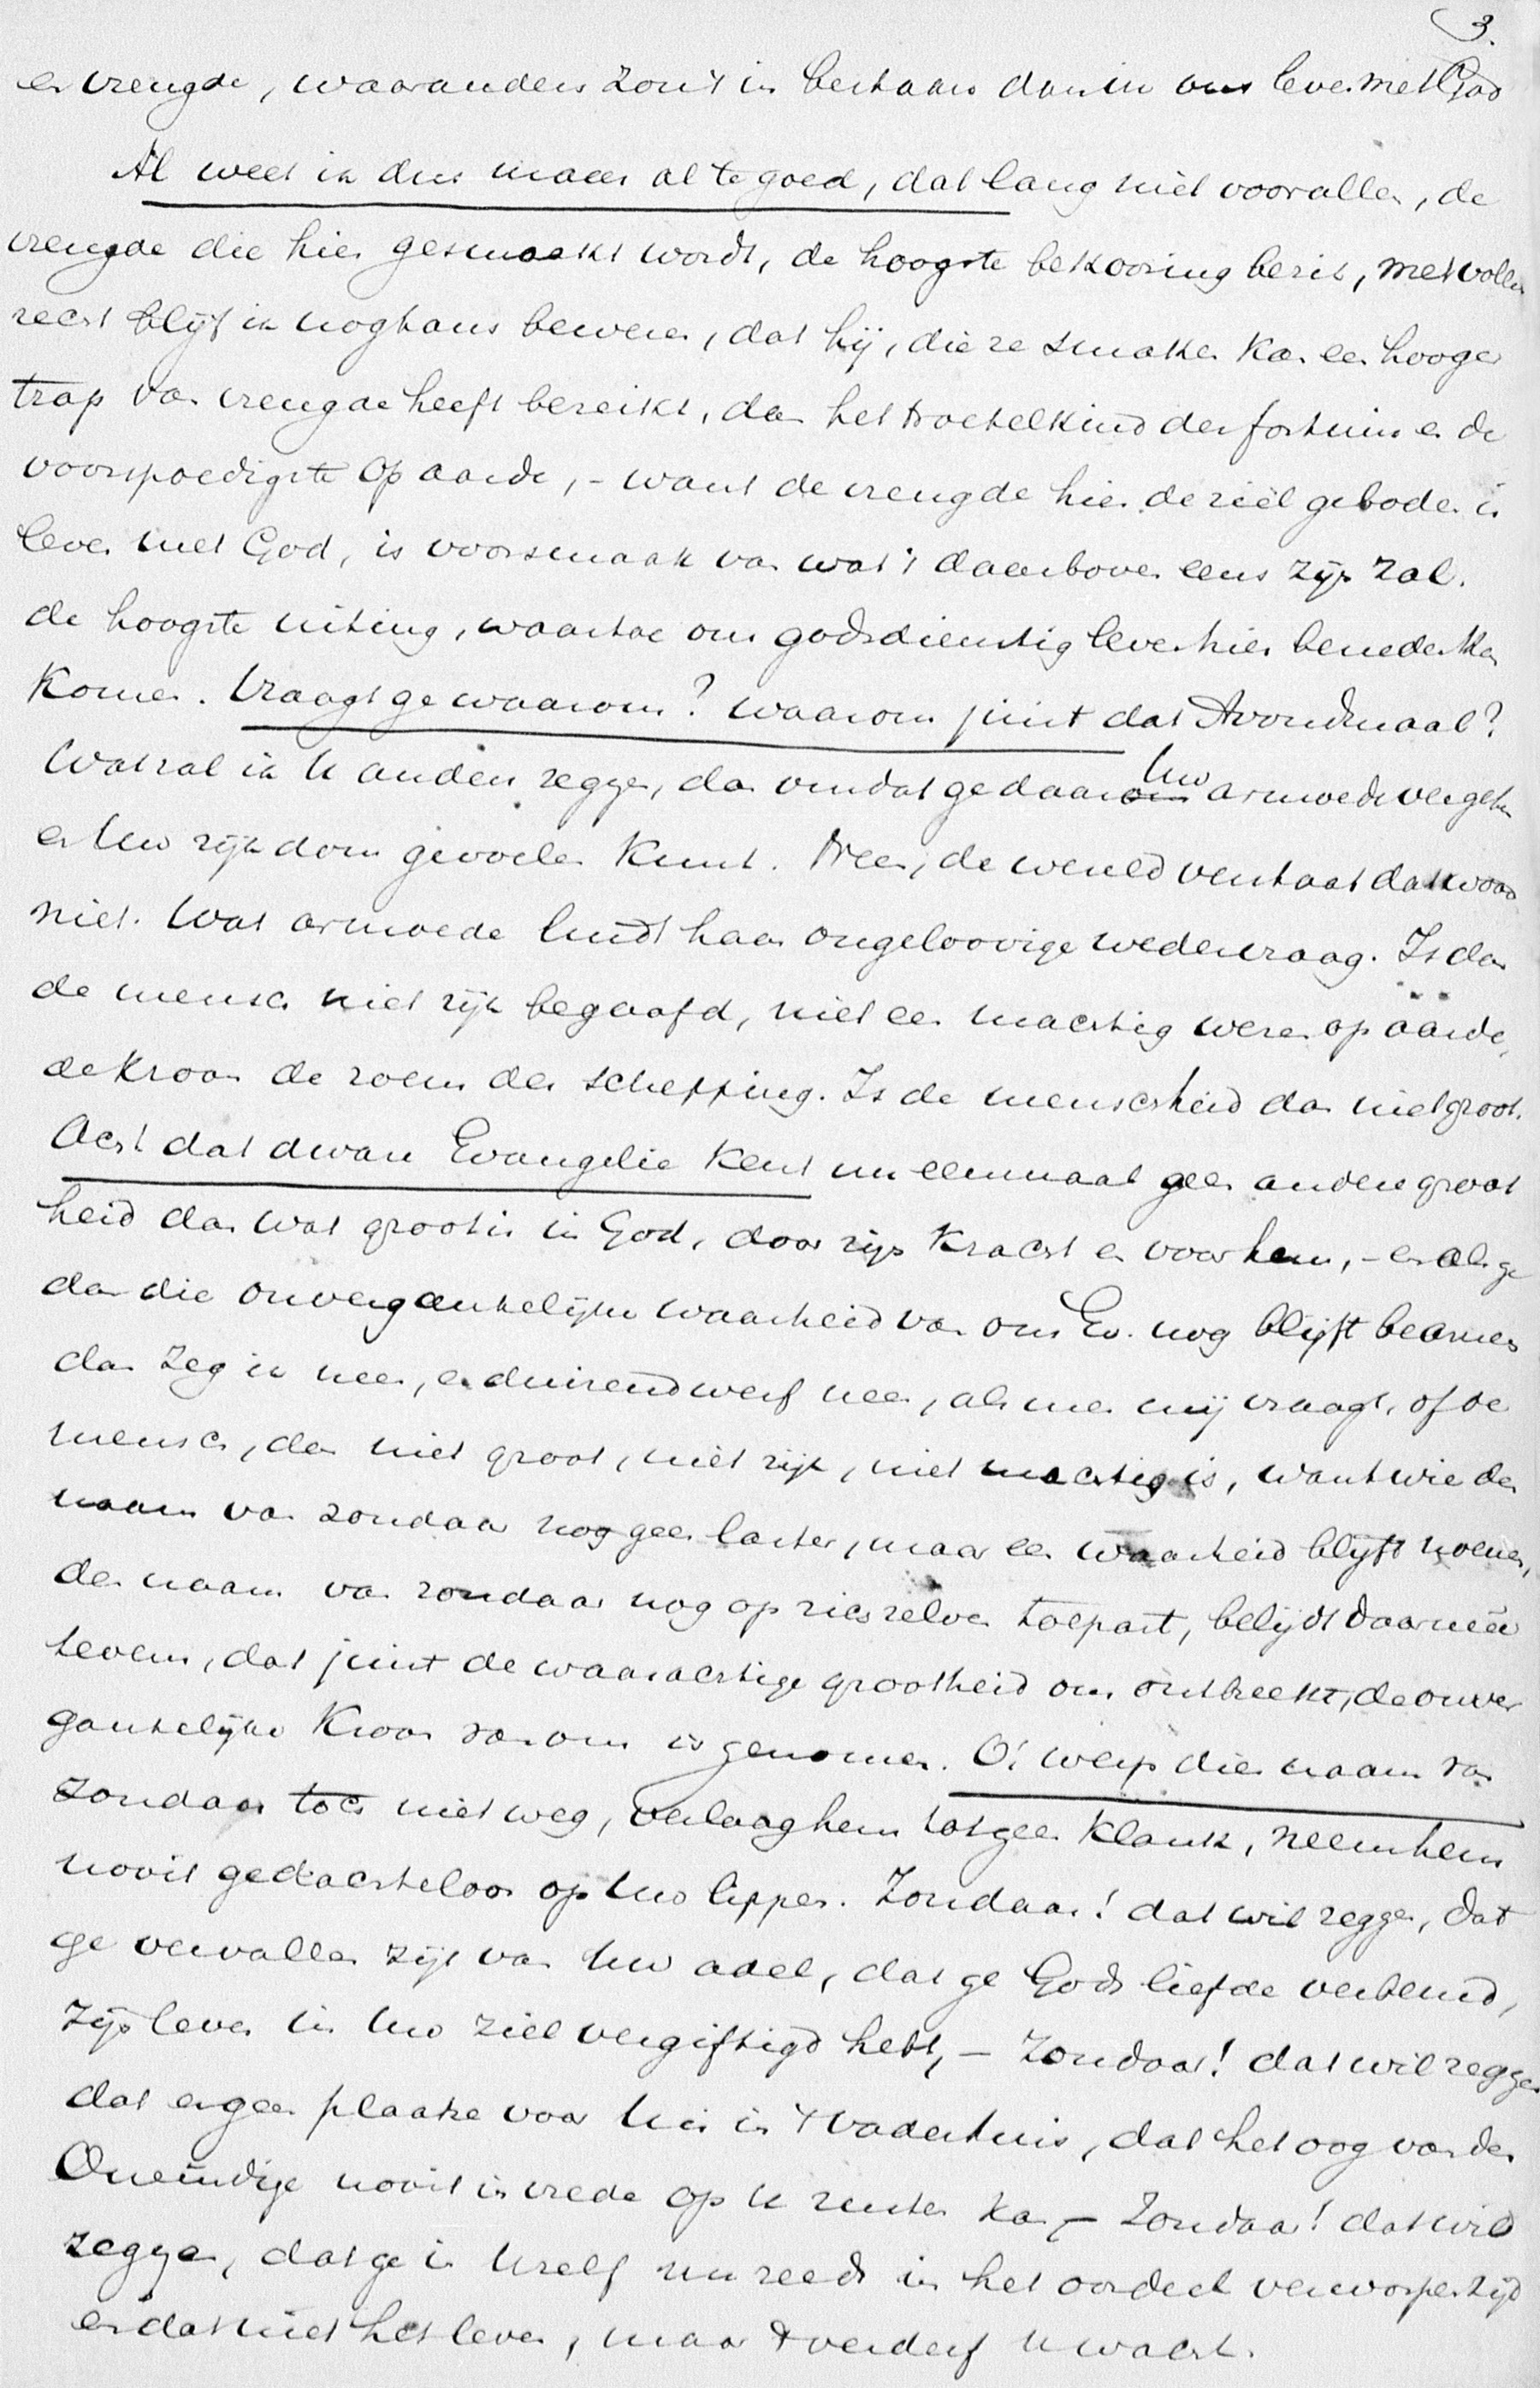 3.
en vreugde, waar anders zou 't in bestaan dan in ons leven met God
Al weet ik dus maar al te goed, dat lang niet voor allen, de
vreugde die hier gesmaakt wordt, de hoogste bekooring bezit, met volle
recht blijf ik nogtans beweren, dat hij, die ze smaken kan een hooger
trap van vreugde heeft bereikt, dan het troetelkind der fortuin en de
voorspoedigste op aarde, - want de vreugde hier de ziel geboden in
leven met God, is voorsmaak van wat 's daarboven eens zijn zal.
de hoogste uiting, waartoe ons godsdienstig leven hier beneden kan
komen. Vraagt ge waarom? waarom juist dat Avondmaal?
Wat zal ik U anders zeggen, dan omdat ge daar Uw armoede vergeten
en Uw rijkdom gevoelen kunt. Neen, de wereld verstaat dat woord
niet. Wat armoede luidt haar ongeloovige wedervraag. Is dan
de mensch niet rijk begaafd, niet een machtig wezen op aarde,
de kroon de roem der schepping. Is de menschheid dan niet groot.
Ach dat dwaze Evangelie kent nu eenmaal geen andere groot
heid dan wat groot is in God, door zijn kracht en voor hem, - en als ge
dan die onvergankelijke waarheid van ons Ev. nog blijft beamen
dan zeg ik neen, en duizendwerf neen, als men mij vraagt, of de
mensch, dan niet groot, niet rijk, niet machtig is, want wie den
naam van zondaar nog geen laster, maar een waarheid blijft noemen,
den naam van zondaar nog op zich zelven toepast, belijdt daarmêe
tevens, dat juist de waarachtige grootheid ons ontbreekt, de onver
gankelijke Kroon van ons is genomen. O! werp dien naam van
zondaar toch niet weg, verlaag hem tot geen klank, neem hem
nooit gedachteloos op Uw lippen. Zondaar! dat wil zeggen, dat
ge vervallen zijt van Uw adel, dat ge Gods liefde verbeurd,
zijn leven in Uw ziel vergiftigd hebt, - Zondaar! dat wil zeggen
dat er geen plaatse voor U is in 't Vaderhuis, dat het oog van den
Oneindige nooit in vrede op U rusten kan, - Zondaar! dat wil
zeggen, dat ge in Uzelf nu reeds in het oordeel verworpen zijt
en dat niet het leven, maar 't verderf U wacht.